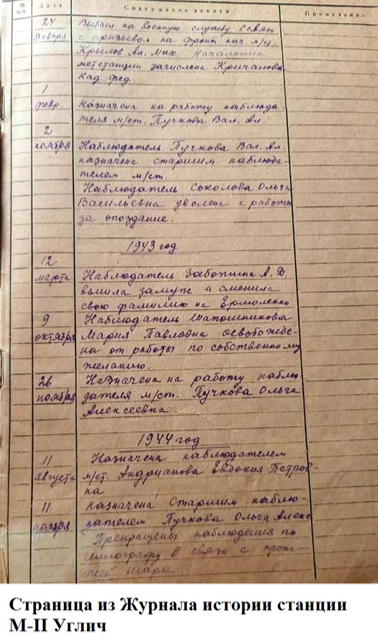 Дата
Содержание записи
Примечание
24 Выбыл на военную службу в связи
января с призывом на фронт нач. м/ст.
Крылов Ал. Мих. Начальник
метстанции зачислена
Над. Фед.
1
февр. Назначена на работу наблюда-
теля м/ст. Пучкова Вал. Ал.
2
ноября Наблюдатель Пучкова Вал. Ал.
назначена старшим наблюда-
телем м/ст.
Наблюдатель Соколова Ольга
Васильевна уволена с работы
за опоздание.
1943 год
12
марта Наблюдатель А. Д.
вышла замуж и сменила
свою фамилию на Ермоленко
9 Наблюдатель Шапошникова
октября Мария Павловна освобожде-
на от работы по собственному
желанию.
26 Назначена на работу наблю
ноября дателя м/ст. Пучкова Ольга
Алексеевна.
1944 год
11 Назначена наблюдателем
августа м/ст. Андрианова Евдокия Петров
на
11 назначена Старшим наблю-
ноября дателем Пучкова Ольга Алекс
Прекращены наблюдения по
гелиографу в связи с
шара
Страница из Журнала истории станции
М-II Углич